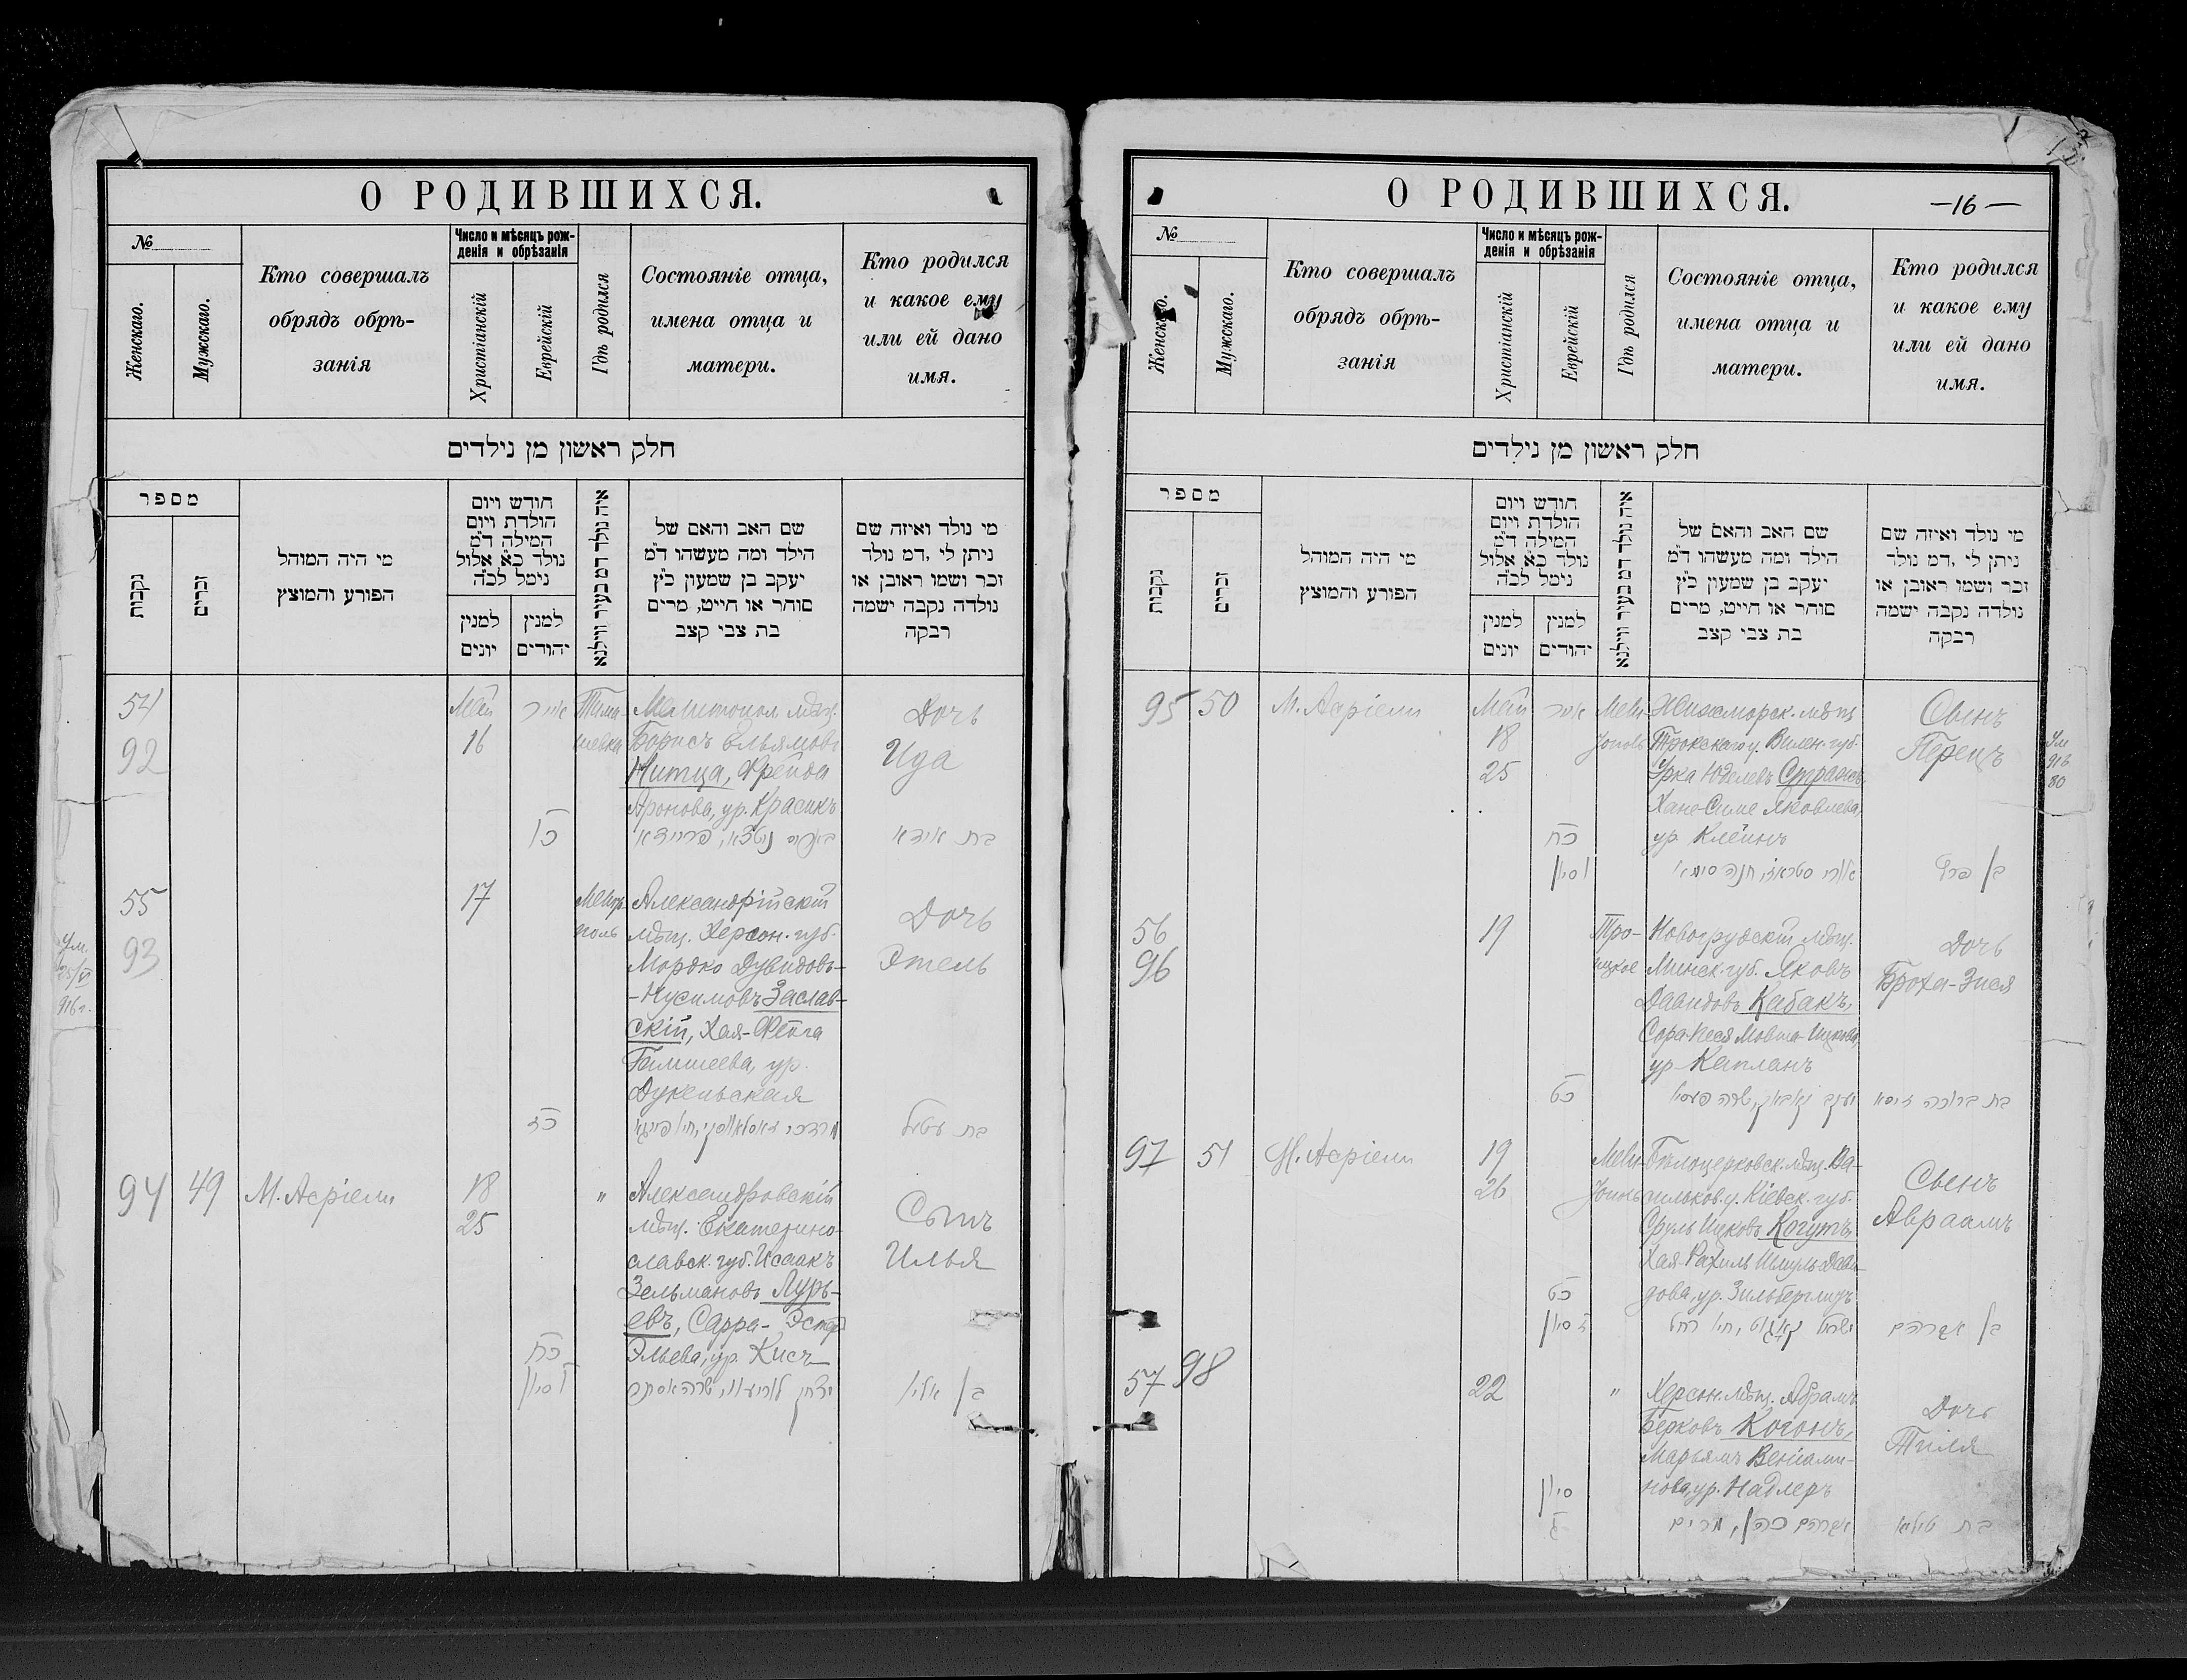 О РОДИВШИХСЯ.
№
Женскаго.
Мужскаго.
Кто совершалъ
обрядъ обрѣ-
занія
Число и мѣсяцъ рож-
денія и обрѣзанія
Христіанскій
Еврейскій
Гдѣ родился
Состояніе отца,
имена отца и
матери.
Кто родился
и какое ему
или ей дано
имя.
חלק ראשון מן נילדים
מספר
נקבות
זכרים
מי היה המוהל
הפורע והמוצץ
חודש ויום
הולדת ויום
המילה ד״מ
נולד כ״א אלול
נימל לכ״ה
למנין
יונים
למנין
יהודים
איה נולד דמ בעיר ווילנא
שם האב והאם של
הילד ומה מעשהו ד״מ
יעקב בן שמעון כ״ץ
סוחר או חייט, מרים
בת צבי קצב
מי נולד ואיזה שם
ניתן לי ,דמ נולד
זכר ושמו ראובן או
נולדה נקבה ישמה
רבקה
54
92
Май
16
אייר
Тима-
шевка
Мелитопол. мѣщ.
Борисъ
Нитца, Фрейда
Аронова, ур. Красикъ
Дочь
Ида
בת אידא
55
93
Ум.
916 г.
17
Мелито-
поль
Александрійскій
мѣщ. Херсон. губ.
Мордко Дувидовъ-
-Нусимовъ Заслав-
скій, Хая-Фейга
ур.
Дукельская
Дочь
Этель
כז
בת עטיל
94
49
М. Асріели
18
25
"
Александровскій
мѣщ. Екатерино-
славск. губ. Исаакъ
Зельмановъ Лурь-
евъ, Сарра-Эстер
Эльева, ур. Кисъ
Сынъ
Илья
כח
סיון
О РОДИВШИХСЯ.
—16—
№
Женскаго.
Мужскаго.
Кто совершалъ
обрядъ обрѣ-
занія
Число и мѣсяцъ рож-
денія и обрѣзанія
Христіанскій
Еврейскій
Гдѣ родился
Состояніе отца,
имена отца и
матери.
Кто родился
и какое ему
или ей дано
имя.
חלק ראשון מן נילדים
מספר
נקבות
זכרים
מי היה המוהל
הפורע והמוצץ
חודש ויום
הולדת ויום
המילה ד״מ
נולד כ״א אלול
נימל לכ״ה
למנין
יונים
למנין
יהודים
איה נולד דמ בעיר ווילנא
שם האב והאם של
הילד ומה מעשהו ד״מ
יעקב בן שמעון כ״ץ
סוחר או חייט, מרים
בת צבי קצב
מי נולד ואיזה שם
ניתן לי ,דמ נולד
זכר ושמו ראובן או
נולדה נקבה ישמה
רבקה
95
50
М. Асріели
Май
18
25
אייר
Жижморск. мѣщ.
Трокскаго у. Вилен. губ.
Юделевъ
Хане-Симе Яковлева,
ур. Клейнъ
Сынъ
Перецъ
Ум
916
80
כח
סיון
בן פרץ
56
96
19
Тро-
ицкое
Новогрудскій мѣщ.
Минск. губ. Яковъ
Давидовъ Кабакъ,
Сора-Песя
ур. Капланъ
Дочь
Броха-Зися
כט
בת ברוכה זיסא
97
51
М. Асріели
19
26
Бѣлоцерковск. мѣщ. Ва-
сильков. у. Кіевск. губ.
Сруль Ицковъ Когутъ,
Хая-Рахиль Шмуль-Дави-
дова, ур.
Сынъ
Авраамъ
כט
סיון
בן אברהם
57
98
22
"
Херсон. мѣщ. Абрамъ
Берковъ Когонъ,
Марьямъ Веніами-
нова, ур. Надлеръ
Дочь
Тиля
סיון
אברהם כהן, מרים
בת טילא